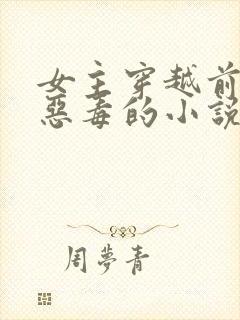 女主穿越前
惡毒的小說
周夢青